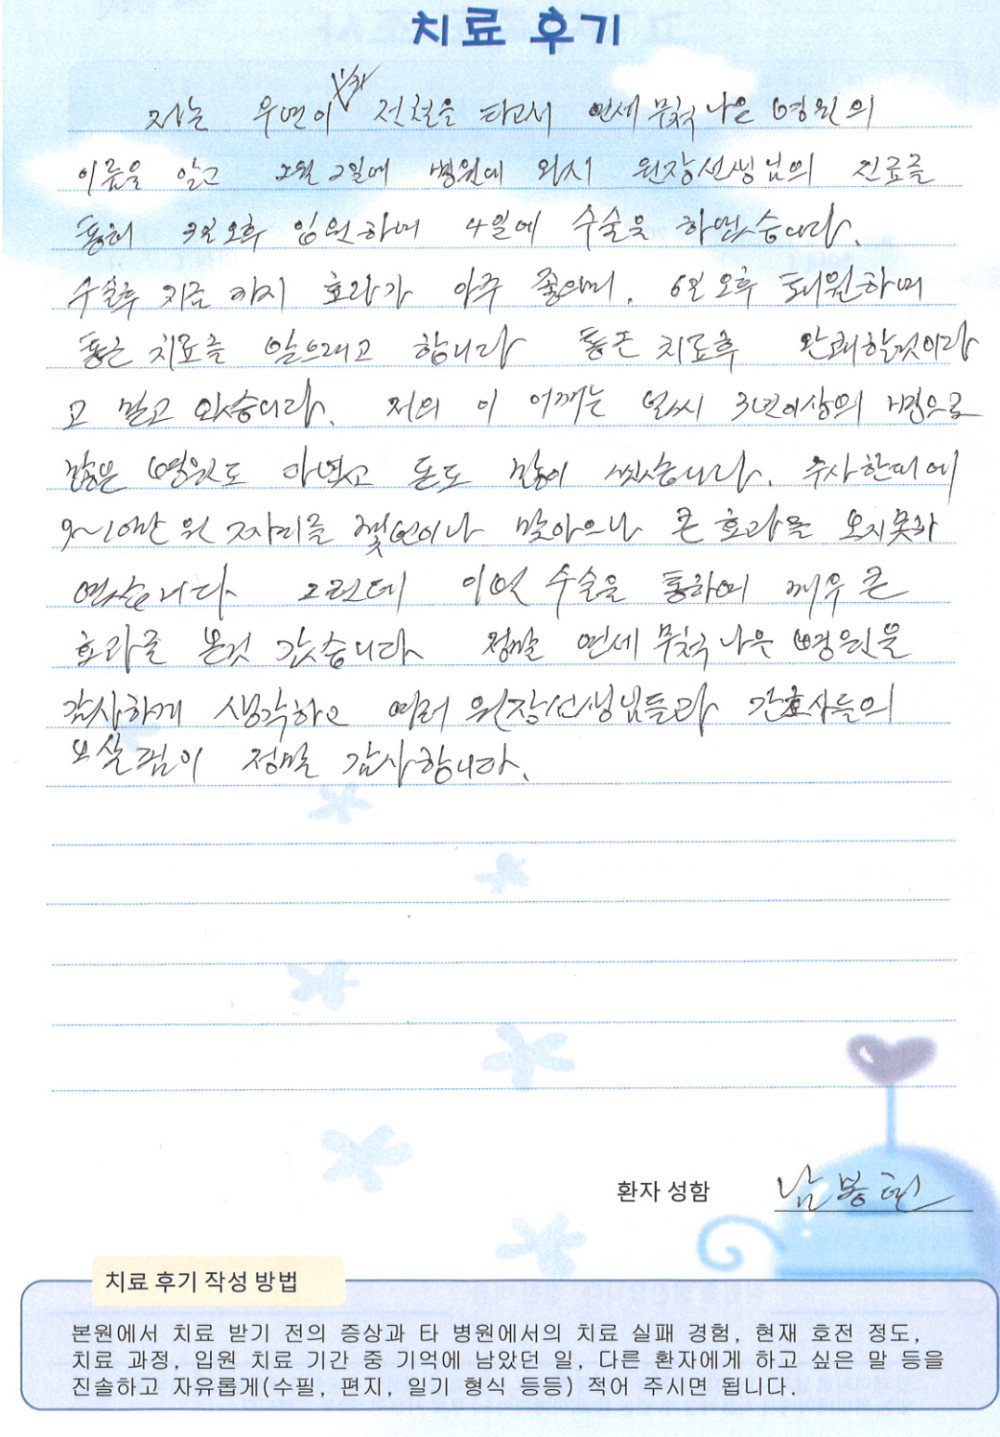 치료 후기
저는 우연이 전철을 타고서 연세 무척 나은 병원의
이름을 알고 2월 2일에 병원에 와서 원장선생님의 진료를
통해 3일 오후 입원하며 4일에 수술을 하였습니다.
수술후 지금 까지 효과가 아주 좋으며. 6일 오후 퇴원하며
통근 치료를 받으려고 합니다 통근 치료후 완쾌할것이라
고 믿고 있습니다. 저의 이 어깨는 벌써 3년이상의 병으로
많은 병원도 다녔고 돈도 많이 썼습니다. 주사한대에
9~10만 원 짜리를 몇번이나 맞았으나 큰 효과를 보지못하
였습니다 그런데 이번 수술을 통하여 매우 큰
효과를 본것 같습니다 정말 연세 무척 나은 병원을
감사하게 생각하고 여러 원장선생님들과 간호사들의
보살핌이 정말 감사합니다.
환자 성함 남봉현
치료 후기 작성 방법
본원에서 치료 받기 전의 증상과 타 병원에서의 치료 실패 경험, 현재 호전 정도,
치료 과정, 입원 치료 기간 중 기억에 남았던 일, 다른 환자에게 하고 싶은 말 등을
진솔하고 자유롭게(수필, 편지, 일기 형식 등등) 적어 주시면 됩니다.